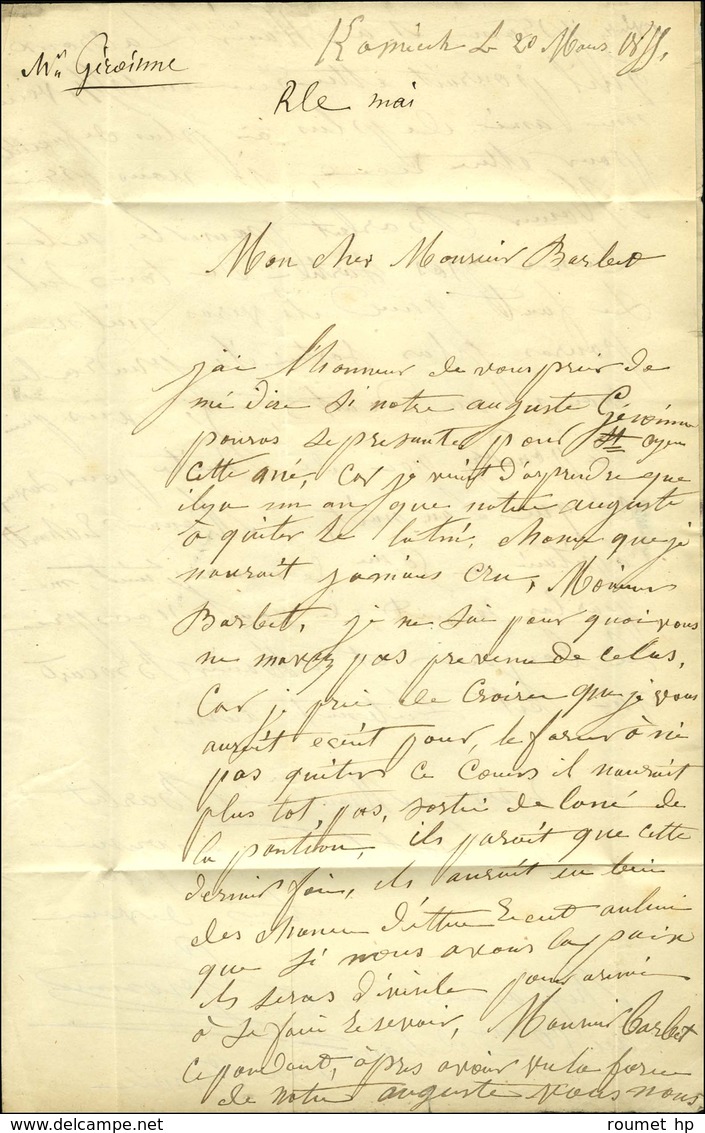 Kamiesh Le 20 Mars 1855,
Mr Géroinne
Rle mai
Mon cher Monsieur Barbet
j'ai l'honneur de vous prier de
mé dire si notre auguste Géroinne
pouras se presanter pour St Cyr
cette ané, Car je vient d'aprendre que
ilya un an que notre auguste
à quiter le latin, chause que je
nourait jamais cru, Monsieur
Barbet, je ne sai pour quoi vous
ne mavez pas prevenu de celas,
Car je prie de croire que je vous
auroit ecrit pour, le forcer à ne
pas quiter ce cours il nouroit
plus tot, pas, sortie de lané de
la pontion, ils paroit que cette
dernier fois, ils auroit eu bien
des chance d'être recut aulieu
que si nous avons la paix
ils seras dificile pour arivé
à se faire resevoir, Monsieur Barbet
cepandant, àpres avoir vu la force
de notre auguste vous nous
roumet hp